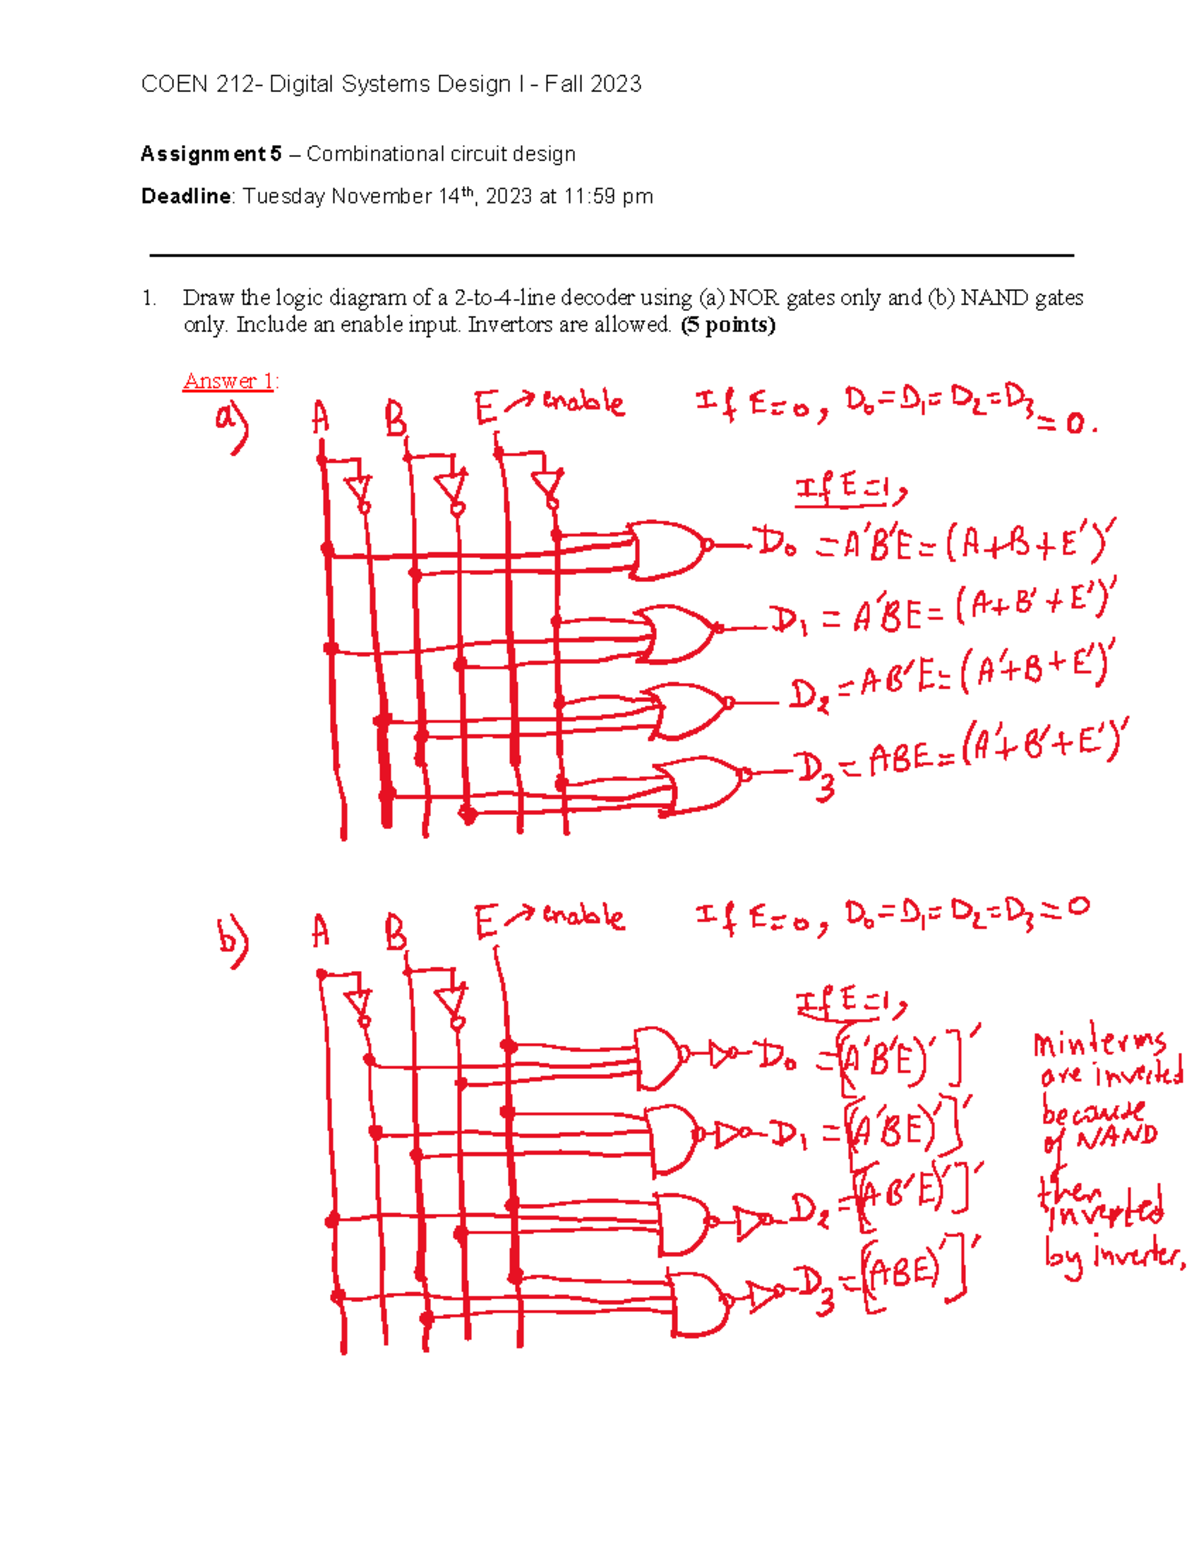 COEN 212- Digital Systems Design I - Fall 2023
Assignment 5 – Combinational circuit design
Deadline: Tuesday November 14th, 2023 at 11:59 pm
1. Draw the logic diagram of a 2-to-4-line decoder using (a) NOR gates only and (b) NAND gates
only. Include an enable input. Invertors are allowed. (5 points)
Answer 1:
a) A B E → enable If E=0, D0=D1=D2=D3=0.
If E=1,
D0 = A'B'E = (A+B+E')'
D1 = A'BE = (A+B'+E')'
D2 = AB'E = (A'+B+E')'
D3 = ABE = (A'+B'+E')'
b) A B E → enable If E=0, D0=D1=D2=D3=0
If E=1,
D0 = [(A'B'E)']'
D1 = [(A'BE)']'
D2 = [(AB'E)']'
D3 = [(ABE)']'
minterms
are inverted
because
of NAND
then
inverted
by inverter.